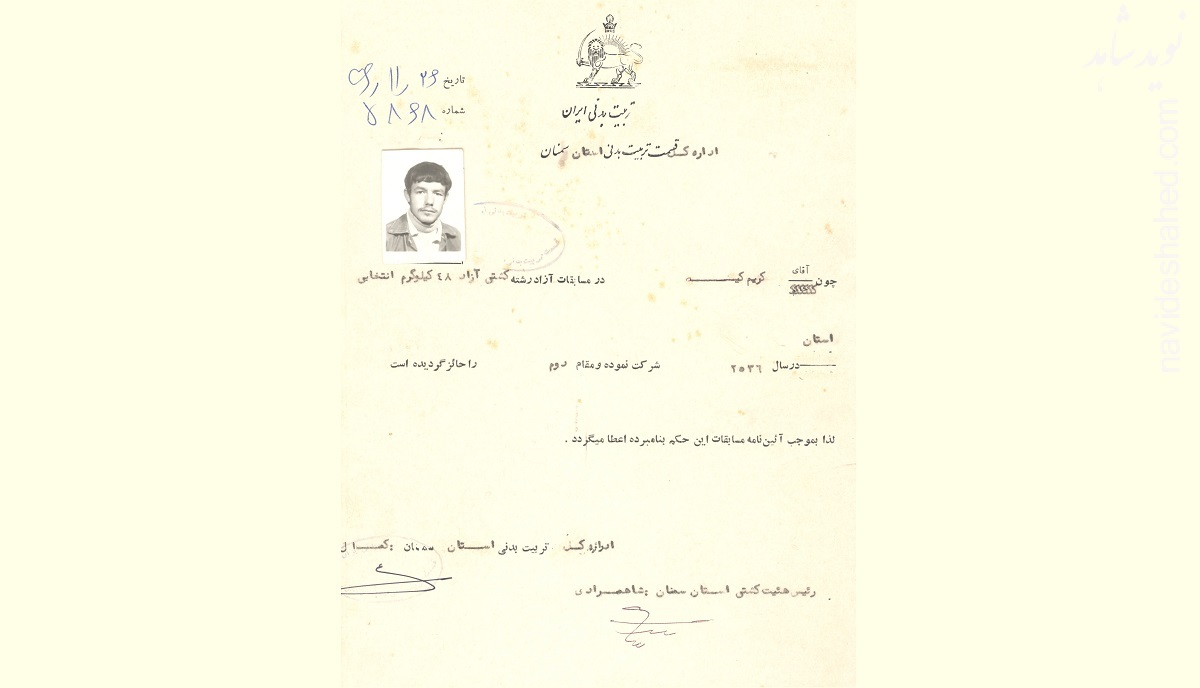 تاریخ ۲۶ ر ۱۱ ر ۳۶
شماره ۵۸۶۸
تربیت بدنی ایران
اداره کل تربیت بدنی استان سمنان
چون آقای کریم در مسابقات آزاد رشته کشتی آزاد ٤٨ کیلوگرم انتخابی
استان
در سال ٢٥٣٦ شرکت نموده و مقام دوم را حائز گردیده است
لذا بموجب آئین نامه مسابقات این حکم بنامبرده اعطا میگردد .
اداره کل تربیت بدنی استان سمنان :
رئیس هیئت کشتی استان سمنان :
نوید شاهد
navideshahed.com